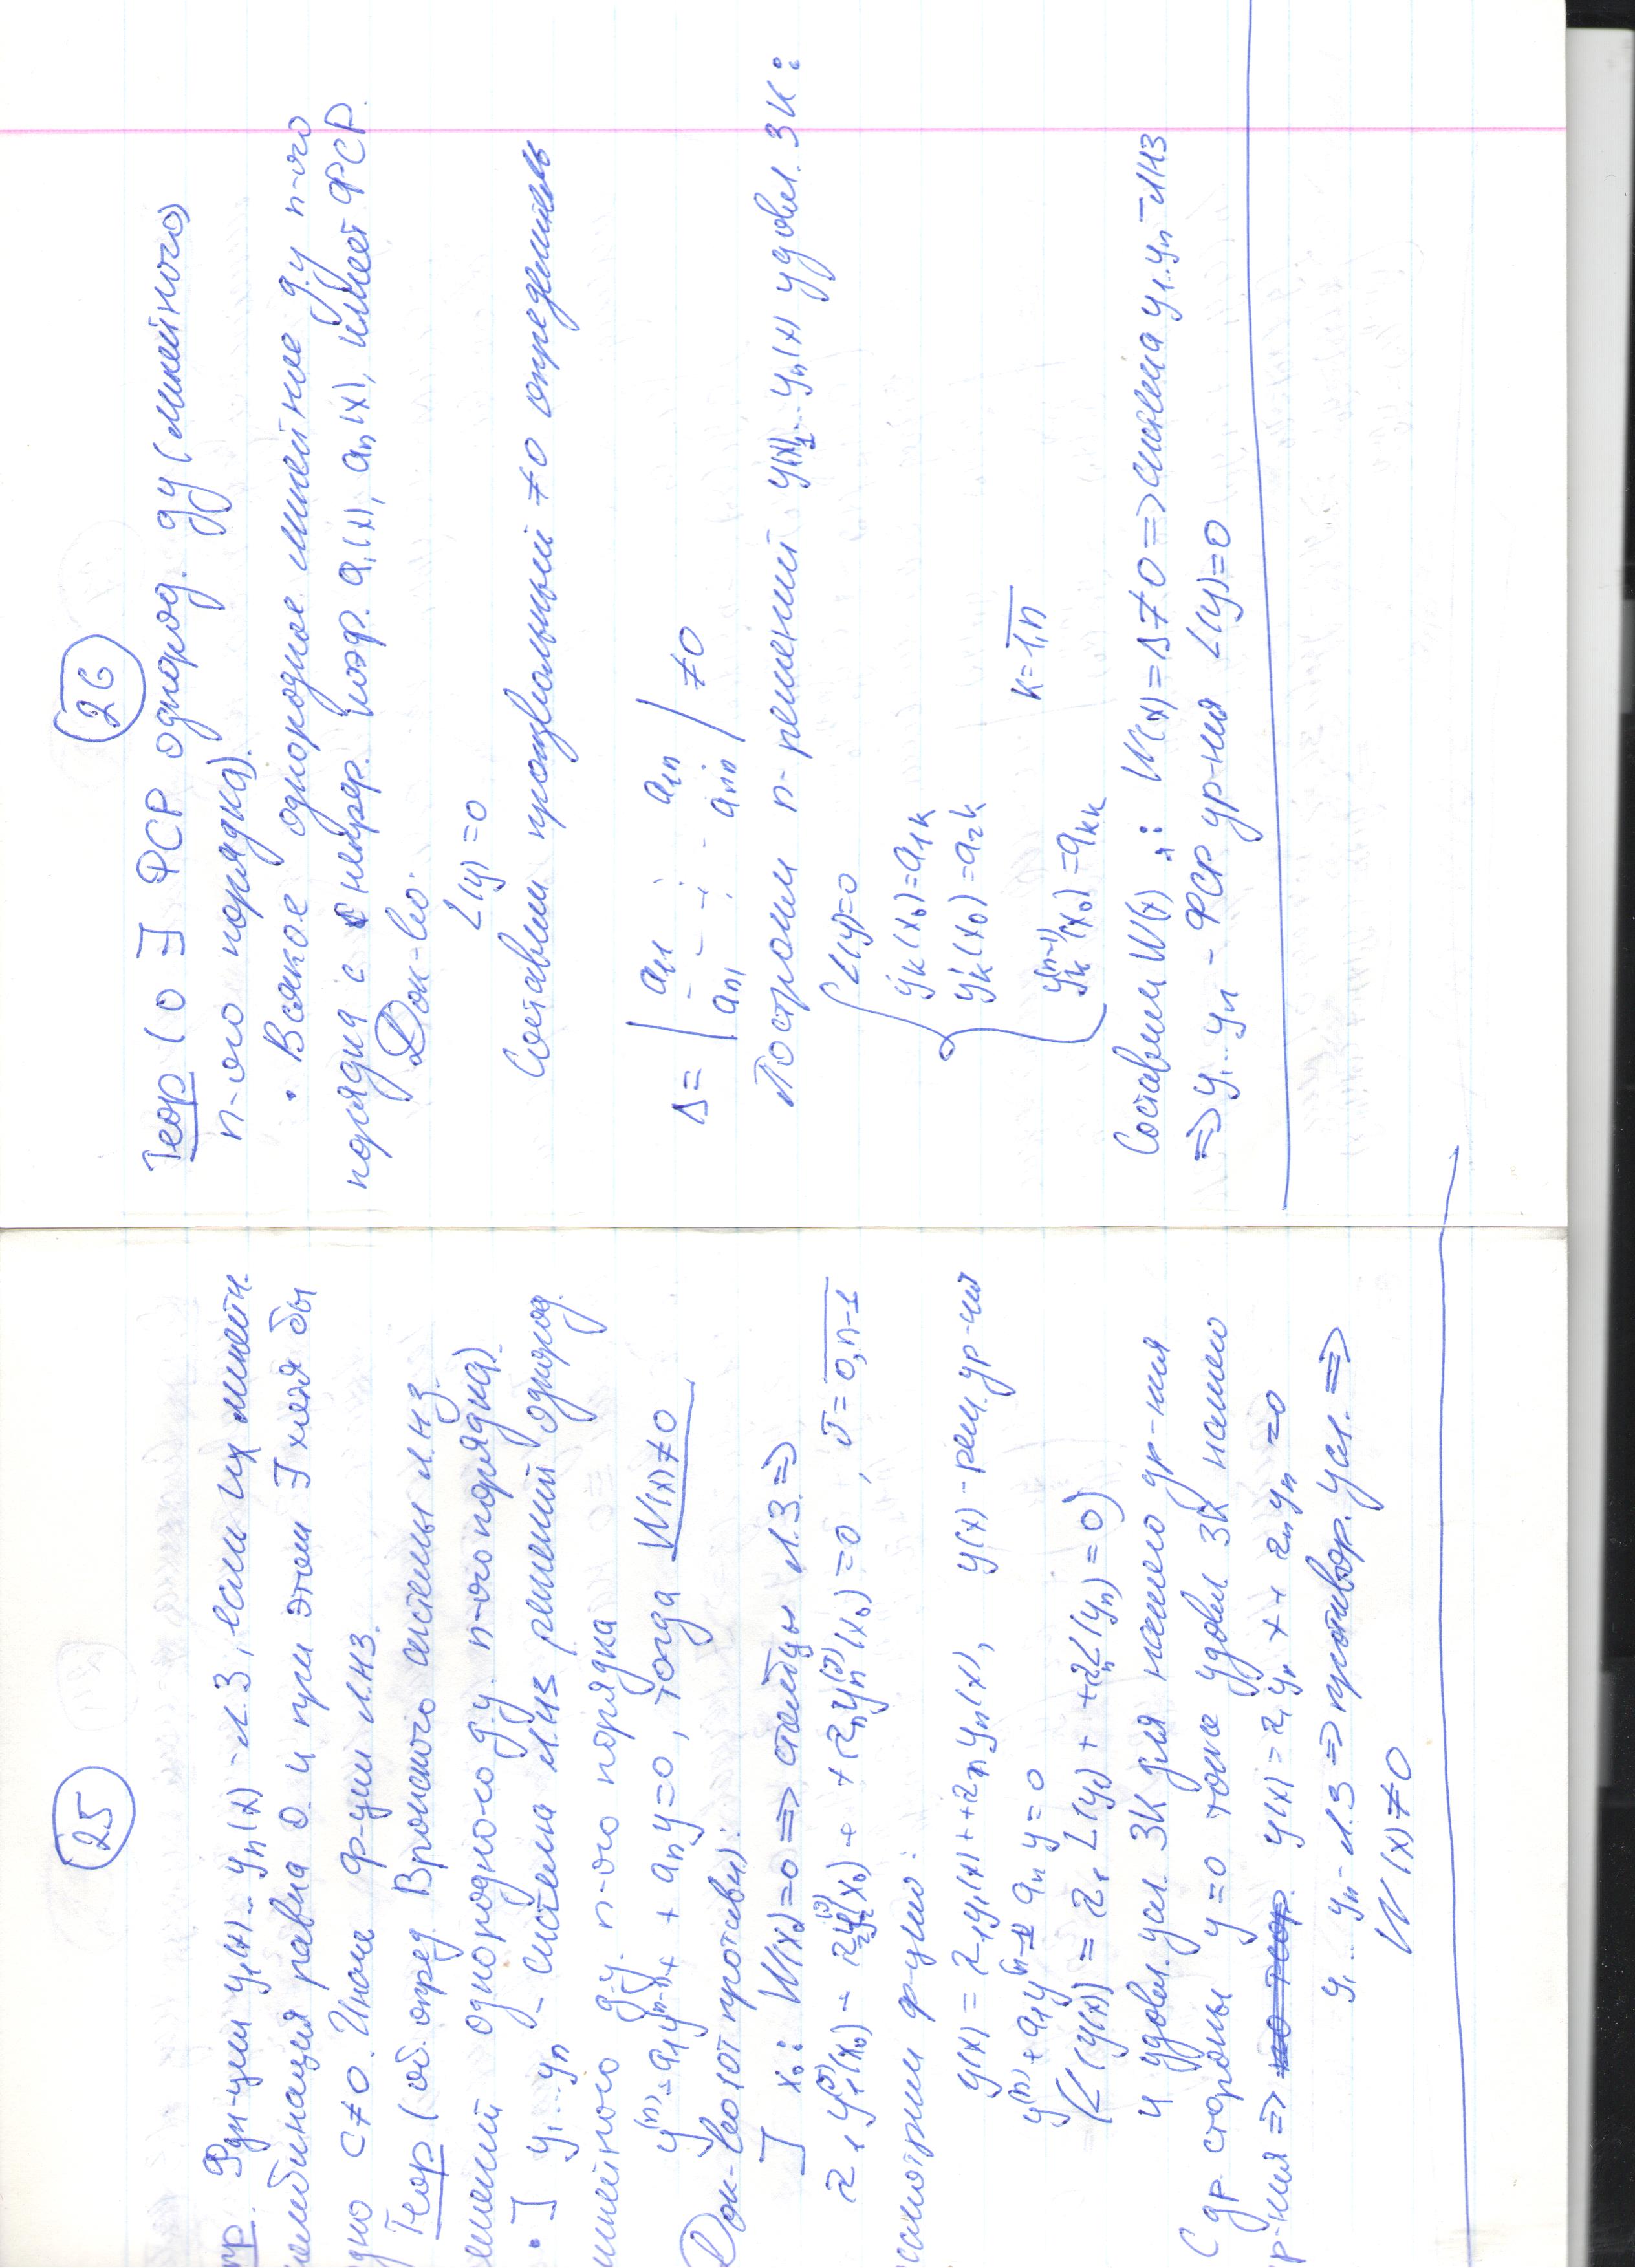 25
опр. Функции y₁(x)... yₙ(x) - Л.З, если их линейн.
комбинация равна 0 и при этом ∃ хотя бы
одно C≠0. Иначе ф-ции ЛНЗ.
Теор (об. опред. Вронского системы ЛНЗ.
решений однородного д.у. n-ого порядка)
• ] y₁...yₙ - система ЛНЗ решений однород.
линейного д.у. n-ого порядка
y⁽ⁿ⁾ + a₁y⁽ⁿ⁻¹⁾ + + aₙy=0, тогда W(x)≠0
Док-во (от против):
] x₀: W(x₀)=0 => столбцы Л.З. =>
α₁y₁⁽ʲ⁾(x₀) + α₂y₂⁽ʲ⁾(x₀) + + αₙyₙ⁽ʲ⁾(x₀)=0, j=0,n-1
рассмотрим ф-цию:
y(x) = α₁y₁(x) + + αₙyₙ(x), y(x) - реш. ур-ния
y⁽ⁿ⁾ + a₁y⁽ⁿ⁻¹⁾ aₙy=0
(L(y(x)) = α₁L(y₁) + + αₙL(yₙ)=0)
и удовл. усл. ЗК для нашего ур-ния
С др. стороны y=0 тоже удовл ЗК нашего
ур-ния => y(x)=α₁y₁ + + αₙyₙ=0
y₁...yₙ - Л.З => противор. усл. =>
W(x)≠0
26
Теор (о ∃ ФСР однород. ду (линейного)
n-ого порядка).
• Всякое однородное линейное д.у n-ого
порядка с непрер. коэф. a₁(x), aₙ(x), имеет ФСР.
Док-во:
L(y)=0
Составим произвольный ≠0 определитель
Δ = | a₁₁ ... a₁ₙ
aₙ₁ ... aₙₙ | ≠0
Построим n-решений y(x)₁...yₙ(x) удовл. ЗК:
{ L(y)=0
yₖ(x₀)=a₁ₖ
y'ₖ(x₀)=a₂ₖ
yₖ⁽ⁿ⁻¹⁾(x₀)=aₖₖ k=1,n
Составим W(x): W(x)=Δ≠0 => система y₁...yₙ - ЛНЗ
=> y₁...yₙ - ФСР ур-ния L(y)=0